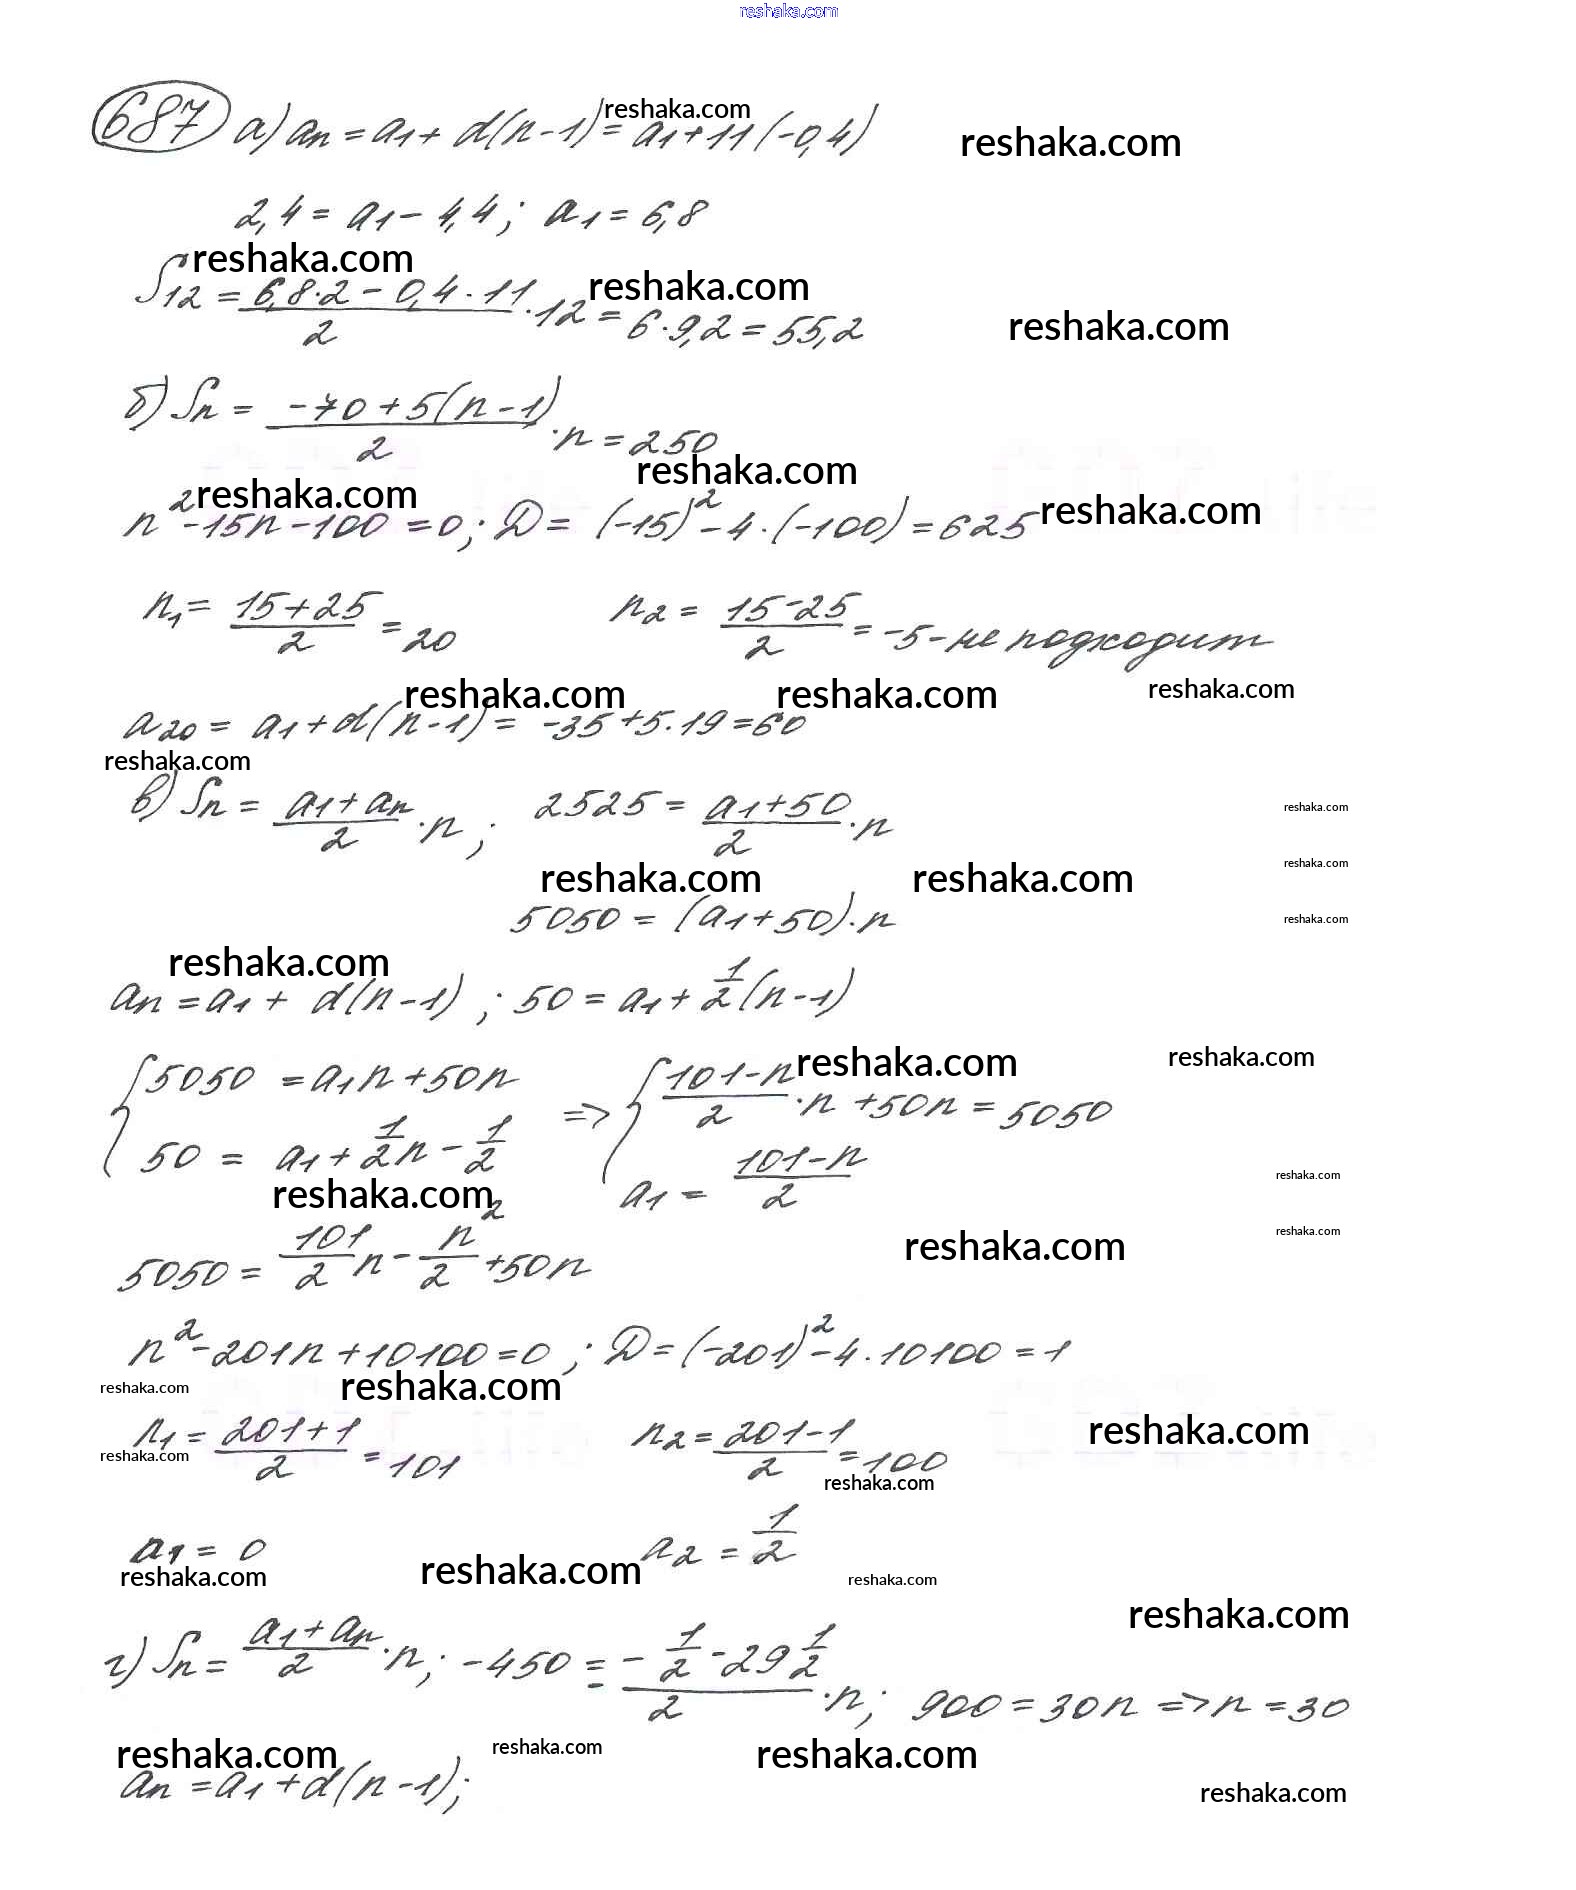 reshaka.com
687 а) aₙ = a₁ + d(n-1) = a₁ + 11(-0,4)
reshaka.com
reshaka.com
2,4 = a₁ - 4,4; a₁ = 6,8
reshaka.com
reshaka.com
S₁₂ = (6,8·2 - 0,4·11)/2 · 12 = 6·9,2 = 55,2
reshaka.com
б) Sₙ = (-70 + 5(n-1))/2 · n = 250
reshaka.com
reshaka.com
n² - 15n - 100 = 0; D = (-15)² - 4·(-100) = 625
reshaka.com
n₁ = (15+25)/2 = 20 n₂ = (15-25)/2 = -5 - не подходит
reshaka.com
reshaka.com
reshaka.com
a₂₀ = a₁ + d(n-1) = -35 + 5·19 = 60
reshaka.com
в) Sₙ = (a₁ + aₙ)/2 · n; 2525 = (a₁ + 50)/2 · n
reshaka.com
reshaka.com
reshaka.com
reshaka.com
5050 = (a₁ + 50)·n
reshaka.com
reshaka.com
aₙ = a₁ + d(n-1); 50 = a₁ + 1/2(n-1)
reshaka.com
reshaka.com
{5050 = a₁n + 50n => {(101-n)/2 · n + 50n = 5050
50 = a₁ + 1/2n - 1/2 a₁ = (101-n)/2
reshaka.com
reshaka.com
reshaka.com
reshaka.com
5050 = 101/2 n - n²/2 + 50n
n² - 201n + 10100 = 0; D = (-201)² - 4·10100 = 1
reshaka.com
reshaka.com
reshaka.com
n₁ = (201+1)/2 = 101 n₂ = (201-1)/2 = 100
reshaka.com
reshaka.com
a₁ = 0 a₂ = 1/2
reshaka.com
reshaka.com
reshaka.com
reshaka.com
г) Sₙ = (a₁ + aₙ)/2 · n; -450 = (-1/2 - 29 1/2)/2 · n; 900 = 30n => n = 30
reshaka.com
reshaka.com
reshaka.com
aₙ = a₁ + d(n-1);
reshaka.com